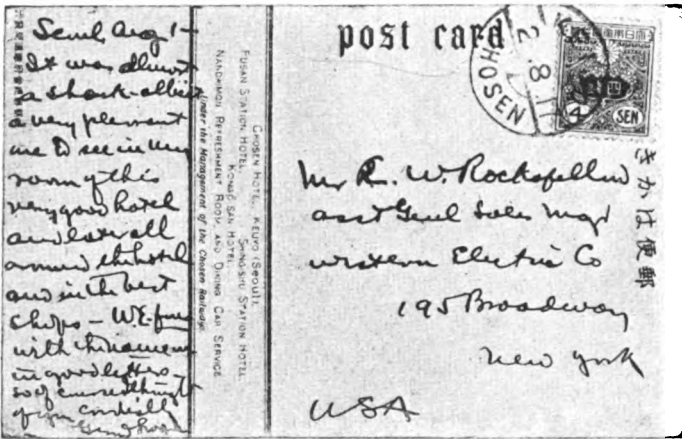 Seoul Aug 1-
It was almost
a shock - albeit
a very pleasant
one to see in my
room of this
very good hotel
and later all
around the hotel
and in the best
shops - W.E. fans
with the name
in good letters -
so of course thought
of you Cordially
CHOSEN HOTEL, KEIJYO (SEOUL).
FUSAN STATION HOTEL. SHINGISHU STATION HOTEL.
KONGO-SAN HOTEL.
NANDAIMON REFRESHMENT ROOM AND DINING CAR SERVICE.
Under the Management of the Chosen Railway.
post card
CHOSEN
2.8.1
4 SEN
きかは便郵
Mr R. W. Rockefeller
asst Genl Sales Mgr
Western Electric Co
195 Broadway
New York
USA